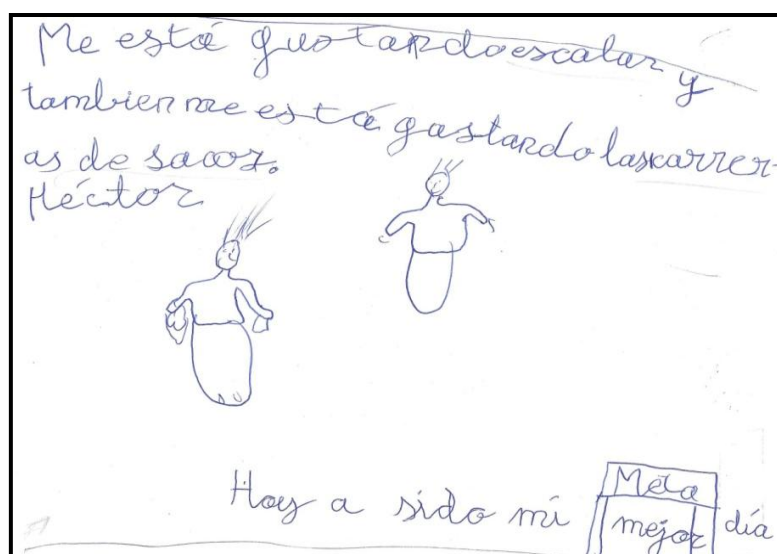 Me está gustando escalar y
tambien me está gustando las carrer-
as de sacos.
Héctor
Meta
Hoy a sido mi mejor día